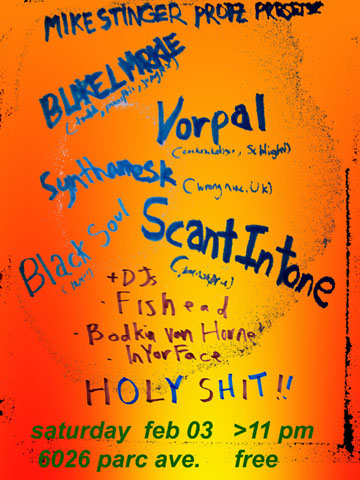 MIKE STINGER PRODZ PRESENTZ
BLAKE MARKLE
Vorpal
Synthamesk
(wrong muz. UK)
Black Soul
Scant Intone
+ DJs
- Fishead
- Bodkin van Horne
- InYorFace
HOLY SHIT!!
saturday feb 03 >11 pm
6026 parc ave. free